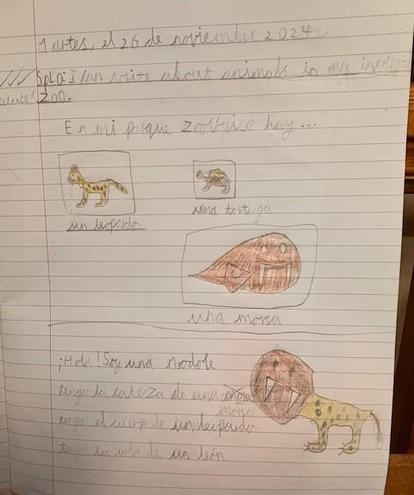 Martes, el 26 de noviembre 2024
SpLO: I can write about animals in my invented
zoo.
En mi parque zoológico hay...
un leopardo
una tortuga
una morsa
¡Hola! Soy una
tengo la cabeza de una
morsa
tengo el cuerpo de un leopardo
tengo la cola de un león